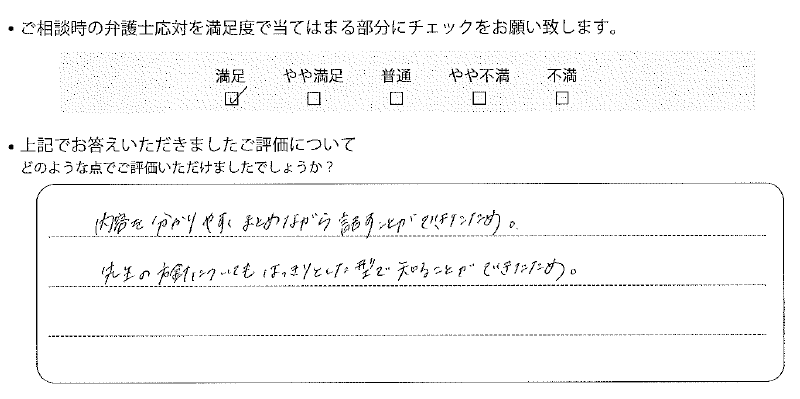 • ご相談時の弁護士応対を満足度で当てはまる部分にチェックをお願い致します。
満足 やや満足 普通 やや不満 不満
• 上記でお答えいただきましたご評価について
どのような点でご評価いただけましたでしょうか？
内容を分かりやすくまとめながら話すことができたため。
先生の方針についてもはっきりとした型で知ることができたため。